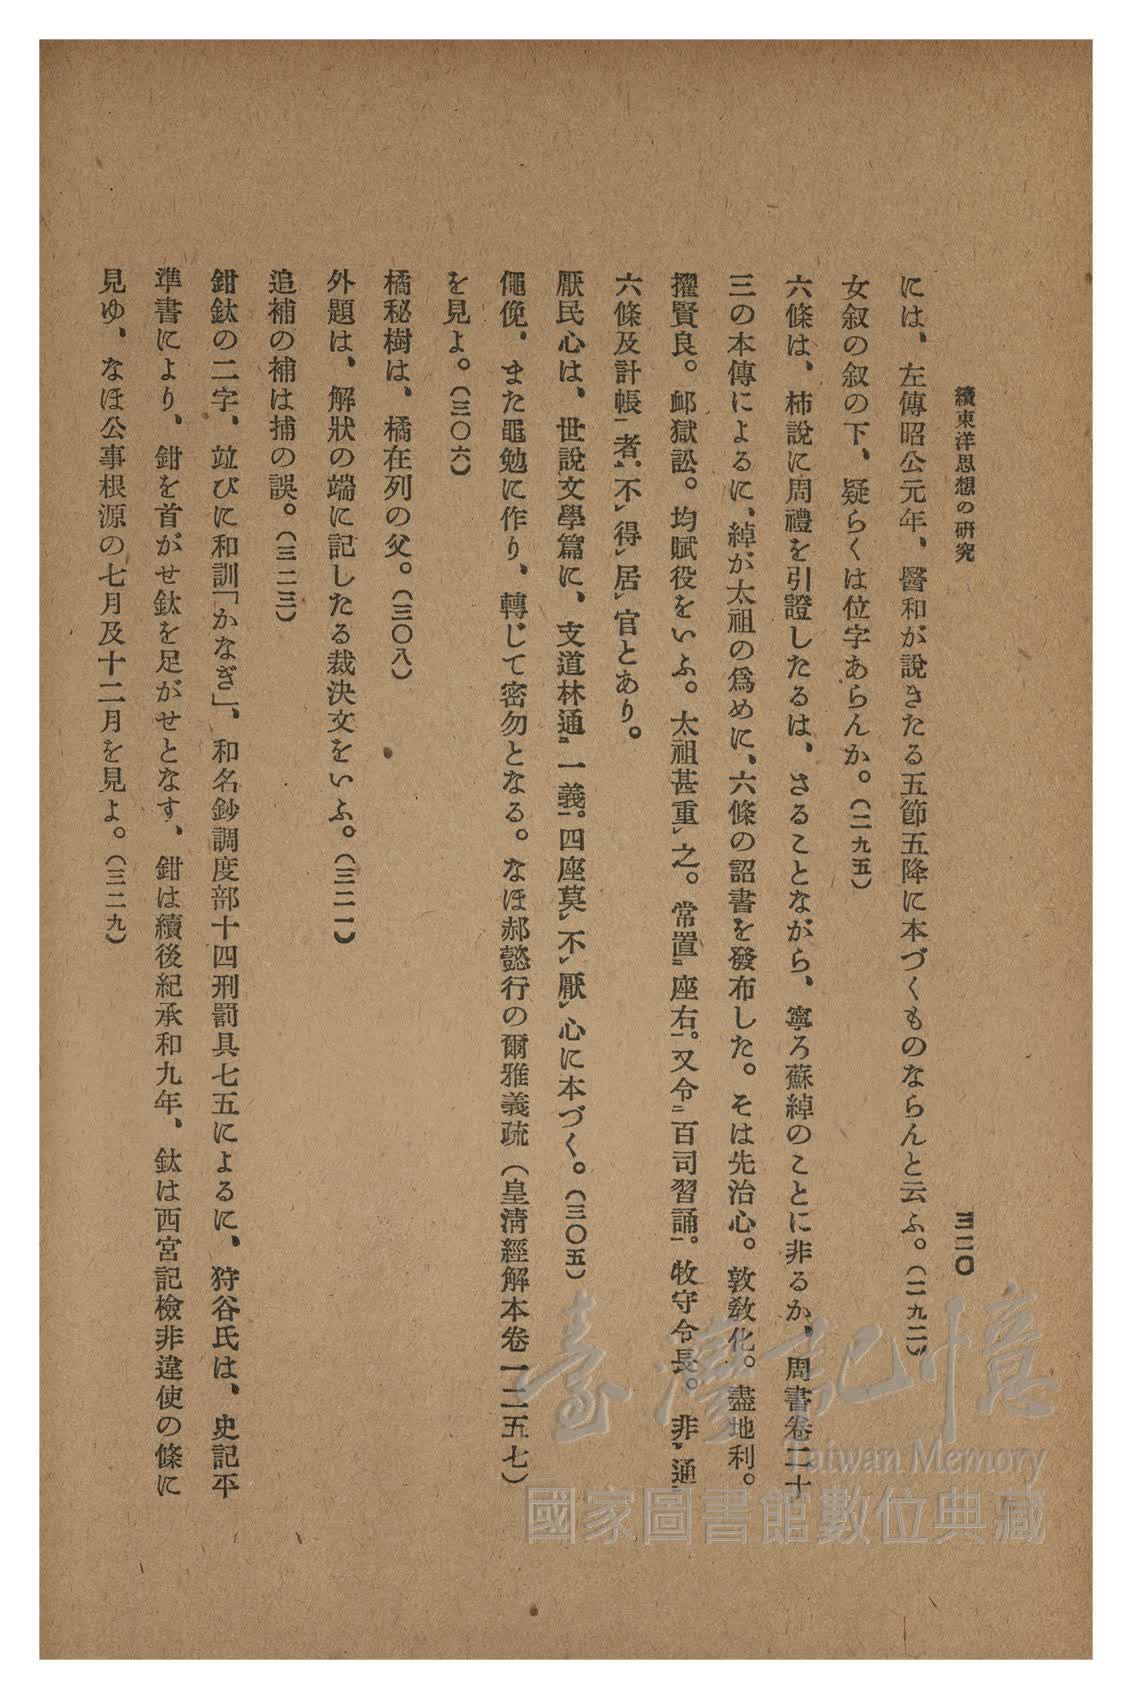 續東洋思想の研究
三二〇
には、左傳昭公元年、醫和が說きたる五節五降に本づくものならんと云ふ。（二九二）
女叙の叙の下、疑らくは位字あらんか。（二九五）
六條は、柿說に周禮を引證したるは、さることながら、寧ろ蘇綽のことに非るか、周書卷二十
三の本傳によるに、綽が太祖の爲めに、六條の詔書を發布した。そは先治心。敦敎化。盡地利。
擢賢良。卹獄訟。均賦役をいふ。太祖甚重㆑之。常置㆓座右㆒。又令㆓百司習誦㆒。牧守令長。非㆘通㆓
六條及計帳㆒者㆖。不㆑得㆑居㆑官とあり。
厭民心は、世說文學篇に、支道林通㆓一義㆒。四座莫㆑不㆑厭㆑心に本づく。（三〇五）
僶俛、また黽勉に作り、轉じて密勿となる。なほ郝懿行の爾雅義疏（皇淸經解本卷一二五七）
を見よ。（三〇六）
橘秘樹は、橘在列の父。（三〇八）
外題は、解狀の端に記したる裁決文をいふ。（三二一）
追補の補は捕の誤。（三二三）
鉗釱の二字、竝びに和訓「かなぎ」、和名鈔調度部十四刑罰具七五によるに、狩谷氏は、史記平
準書により、鉗を首がせ釱を足がせとなす、鉗は續後紀承和九年、釱は西宮記檢非違使の條に
見ゆ、なほ公事根源の七月及十二月を見よ。（三二九）
臺灣記憶
Taiwan Memory
國家圖書館數位典藏